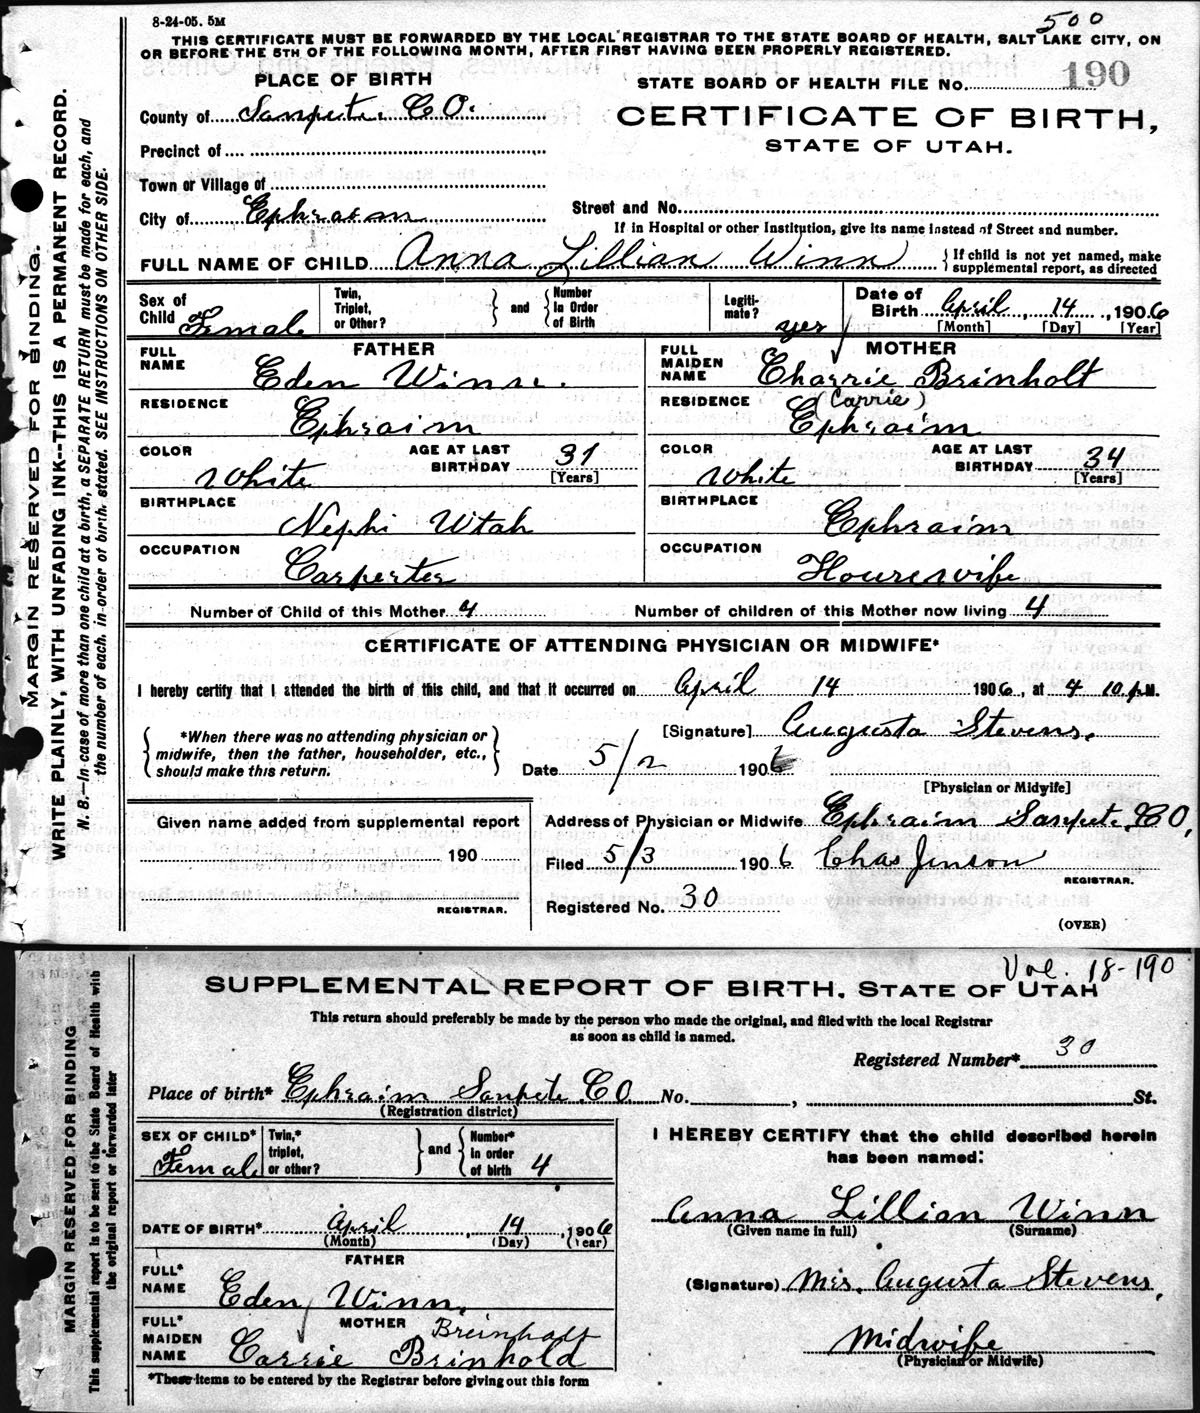 8-24-05. 5M
500
THIS CERTIFICATE MUST BE FORWARDED BY THE LOCAL REGISTRAR TO THE STATE BOARD OF HEALTH, SALT LAKE CITY, ON
OR BEFORE THE 5TH OF THE FOLLOWING MONTH, AFTER FIRST HAVING BEEN PROPERLY REGISTERED.
PLACE OF BIRTH
STATE BOARD OF HEALTH FILE No. 190
County of Sanpete CO.
CERTIFICATE OF BIRTH,
STATE OF UTAH.
Precinct of
Town or Village of
City of Ephraim
Street and No.
If in Hospital or other Institution, give its name instead of Street and number.
FULL NAME OF CHILD Anna Lillian Winn { If child is not yet named, make supplemental report, as directed
Sex of Child Female
Twin, Triplet, or Other? } and { Number in Order of Birth
Legitimate? yes
Date of Birth April 14, 1906
[Month] [Day] [Year]
FATHER
FULL NAME Eden Winn.
RESIDENCE Ephraim
COLOR White
AGE AT LAST BIRTHDAY 31 [Years]
BIRTHPLACE Nephi Utah
OCCUPATION Carpenter
MOTHER
FULL MAIDEN NAME Charrie Brinholt
(Carrie)
RESIDENCE Ephraim
COLOR White
AGE AT LAST BIRTHDAY 34 [Years]
BIRTHPLACE Ephraim
OCCUPATION Housewife
Number of Child of this Mother 4
Number of children of this Mother now living 4
CERTIFICATE OF ATTENDING PHYSICIAN OR MIDWIFE*
I hereby certify that I attended the birth of this child, and that it occurred on April 14 1906, at 4 10 P.M.
{ *When there was no attending physician or midwife, then the father, householder, etc., should make this return. }
[Signature] Augusta Stevens.
Date 5/2 1906
[Physician or Midwife]
Given name added from supplemental report
190
REGISTRAR.
Address of Physician or Midwife Ephraim Sanpete CO,
Filed 5/3 1906 Chas Jenson
REGISTRAR.
Registered No. 30
(OVER)
MARGIN RESERVED FOR BINDING.
WRITE PLAINLY, WITH UNFADING INK---THIS IS A PERMANENT RECORD.
N. B.—In case of more than one child at a birth, a SEPARATE RETURN must be made for each, and
the number of each, in order of birth, stated. SEE INSTRUCTIONS ON OTHER SIDE.
Vol. 18-190
SUPPLEMENTAL REPORT OF BIRTH. STATE OF UTAH
This return should preferably be made by the person who made the original, and filed with the local Registrar
as soon as child is named.
Registered Number* 30
Place of birth* Ephraim Sanpete CO No. , St.
(Registration district)
SEX OF CHILD* Female
Twin,* triplet, or other? } and { Number* in order of birth 4
DATE OF BIRTH* April 14, 1906
(Month) (Day) (Year)
FATHER
FULL* NAME Eden Winn,
MOTHER
Breinholt
FULL* MAIDEN NAME Carrie Brinhold
*These items to be entered by the Registrar before giving out this form
I HEREBY CERTIFY that the child described herein
has been named:
Anna Lillian Winn
(Given name in full) (Surname)
(Signature) Mrs. Augusta Stevens,
Midwife
(Physician or Midwife)
MARGIN RESERVED FOR BINDING
This supplemental report is to be sent to the State Board of Health with
the original report or forwarded later